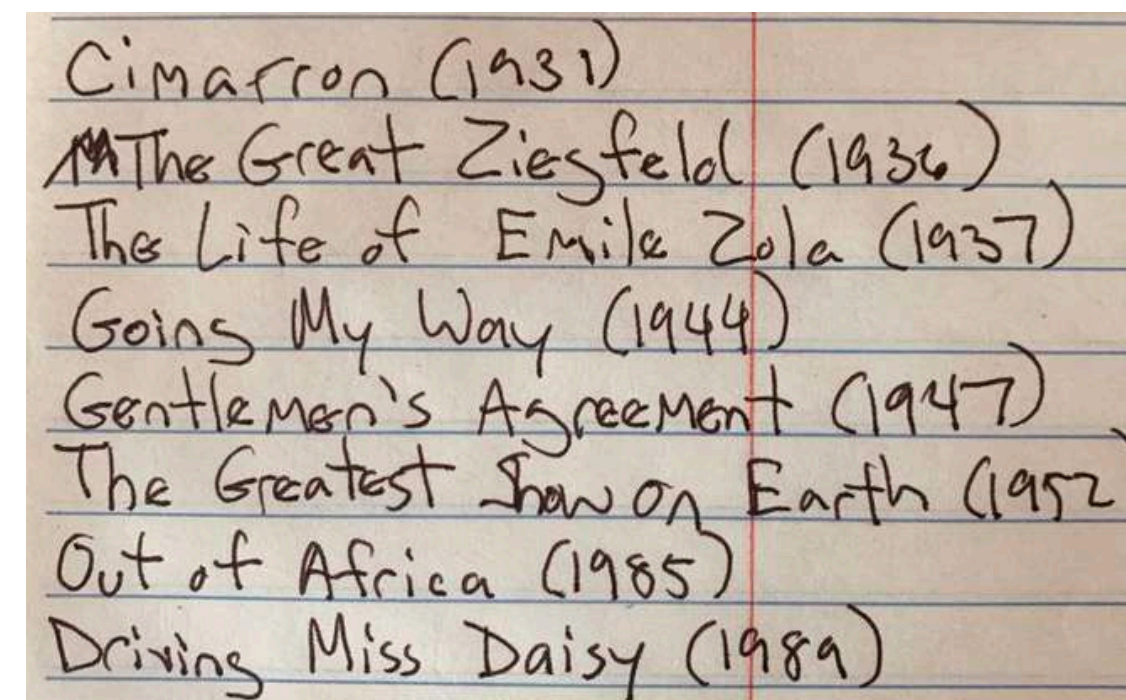 Cimarron (1931)
The Great Ziegfeld (1936)
The Life of Emile Zola (1937)
Going My Way (1944)
Gentlemen's Agreement (1947)
The Greatest Show On Earth (1952)
Out of Africa (1985)
Driving Miss Daisy (1989)